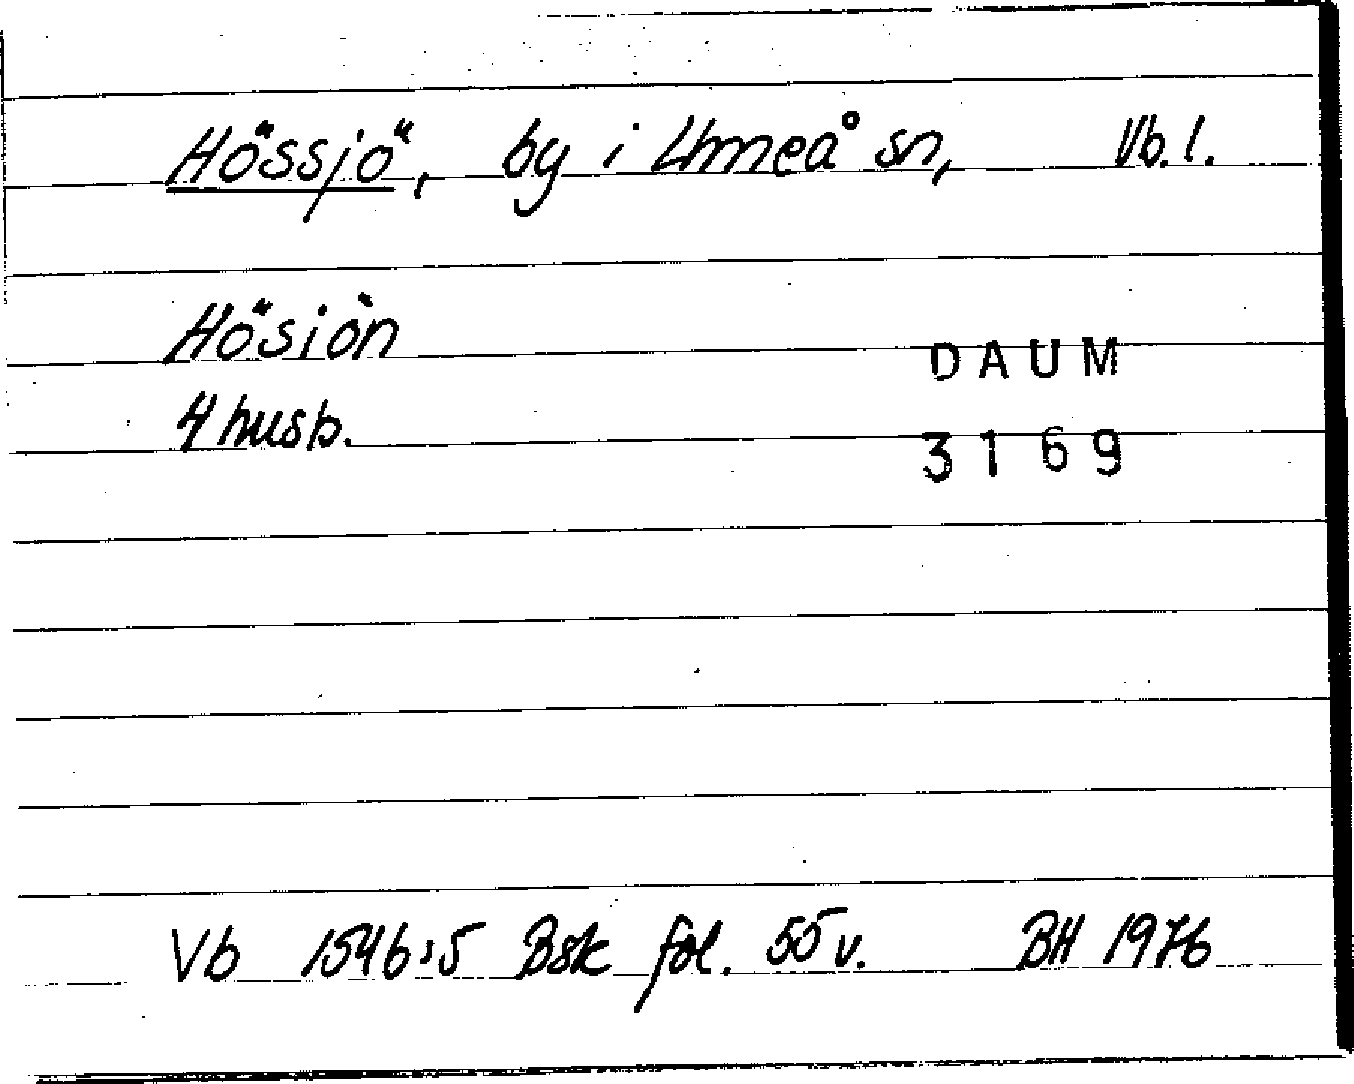 Hössjö, by i Umeå sn, Vb. l.
Hösiön
DAUM
4 husb.
3169
Vb 1546:5 Bsk fol. 55 v. BH 1976